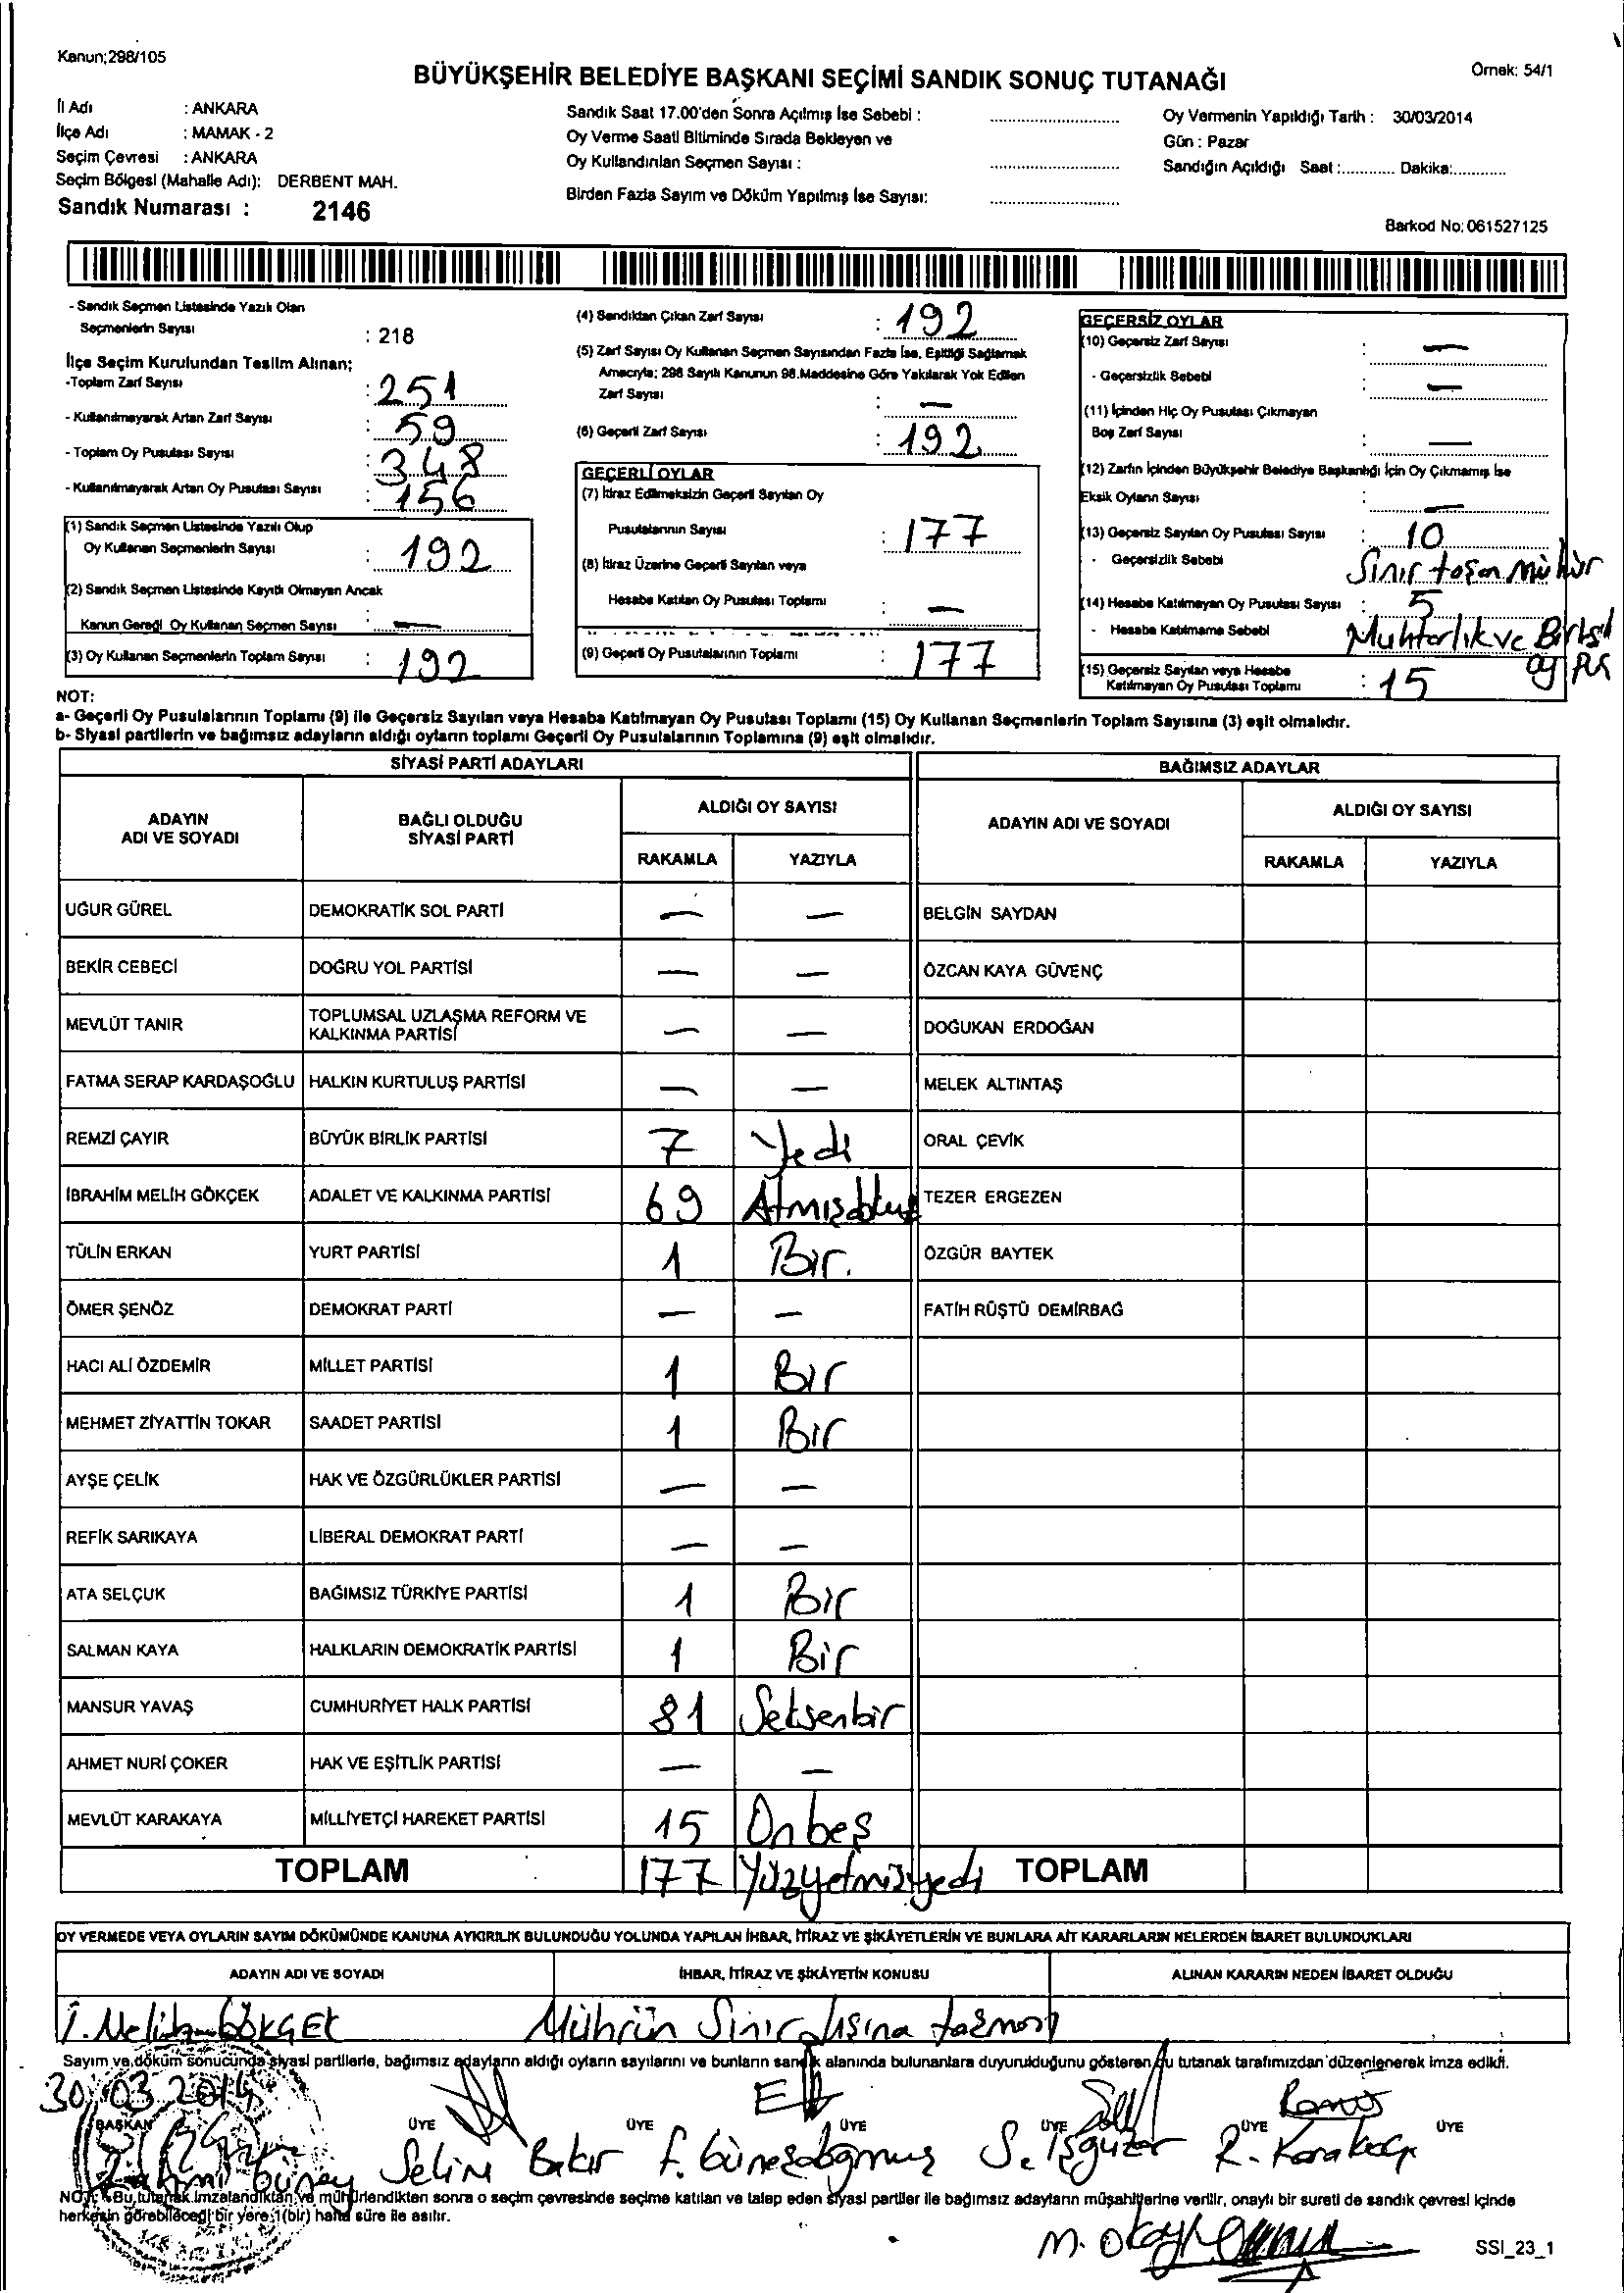 Kanun;298/105
BÜYÜKŞEHİR BELEDİYE BAŞKANI SEÇİMİ SANDIK SONUÇ TUTANAĞI
Örnek: 54/1
İl Adı : ANKARA
İlçe Adı : MAMAK - 2
Seçim Çevresi : ANKARA
Seçim Bölgesi (Mahalle Adı): DERBENT MAH.
Sandık Numarası : 2146
Sandık Saat 17.00'den Sonra Açılmış İse Sebebi :
Oy Verme Saati Bitiminde Sırada Bekleyen ve
Oy Kullandırılan Seçmen Sayısı :
Birden Fazla Sayım ve Döküm Yapılmış İse Sayısı:
Oy Vermenin Yapıldığı Tarih : 30/03/2014
Gün : Pazar
Sandığın Açıldığı Saat :............ Dakika:............
Barkod No: 061527125
- Sandık Seçmen Listesinde Yazılı Olan
Seçmenlerin Sayısı : 218
İlçe Seçim Kurulundan Teslim Alınan;
-Toplam Zarf Sayısı : 251
- Kullanılmayarak Artan Zarf Sayısı : 59
- Toplam Oy Pusulası Sayısı : 348
- Kullanılmayarak Artan Oy Pusulası Sayısı : 156
(1) Sandık Seçmen Listesinde Yazılı Olup
Oy Kullanan Seçmenlerin Sayısı : 192
(2) Sandık Seçmen Listesinde Kayıtlı Olmayan Ancak
Kanun Gereği Oy Kullanan Seçmen Sayısı : —
(3) Oy Kullanan Seçmenlerin Toplam Sayısı : 192
(4) Sandıktan Çıkan Zarf Sayısı : 192
(5) Zarf Sayısı Oy Kullanan Seçmen Sayısından Fazla İse, Eşitliği Sağlamak
Amacıyla; 298 Sayılı Kanunun 98.Maddesine Göre Yakılarak Yok Edilen
Zarf Sayısı : —
(6) Geçerli Zarf Sayısı : 192
GEÇERLİ OYLAR
(7) İtiraz Edilmeksizin Geçerli Sayılan Oy
Pusulalarının Sayısı : 177
(8) İtiraz Üzerine Geçerli Sayılan veya
Hesaba Katılan Oy Pusulası Toplamı : —
(9) Geçerli Oy Pusulalarının Toplamı : 177
GEÇERSİZ OYLAR
(10) Geçersiz Zarf Sayısı : —
- Geçersizlik Sebebi : —
(11) İçinden Hiç Oy Pusulası Çıkmayan
Boş Zarf Sayısı : —
(12) Zarfın İçinden Büyükşehir Belediye Başkanlığı İçin Oy Çıkmamış İse
Eksik Oyların Sayısı : —
(13) Geçersiz Sayılan Oy Pusulası Sayısı : 10
- Geçersizlik Sebebi Sınır taşan mühür
(14) Hesaba Katılmayan Oy Pusulası Sayısı : 5
- Hesaba Katılmama Sebebi Muhtarlık ve
oy
(15) Geçersiz Sayılan veya Hesaba
Katılmayan Oy Pusulası Toplamı : 15
NOT:
a- Geçerli Oy Pusulalarının Toplamı (9) ile Geçersiz Sayılan veya Hesaba Katılmayan Oy Pusulası Toplamı (15) Oy Kullanan Seçmenlerin Toplam Sayısına (3) eşit olmalıdır.
b- Siyasi partilerin ve bağımsız adayların aldığı oyların toplamı Geçerli Oy Pusulalarının Toplamına (9) eşit olmalıdır.
SİYASİ PARTİ ADAYLARI
BAĞIMSIZ ADAYLAR
ADAYIN
ADI VE SOYADI
BAĞLI OLDUĞU
SİYASİ PARTİ
ALDIĞI OY SAYISI
RAKAMLA YAZIYLA
ADAYIN ADI VE SOYADI
ALDIĞI OY SAYISI
RAKAMLA YAZIYLA
UĞUR GÜREL DEMOKRATİK SOL PARTİ — — BELGİN SAYDAN
BEKİR CEBECİ DOĞRU YOL PARTİSİ — — ÖZCAN KAYA GÜVENÇ
MEVLÜT TANIR TOPLUMSAL UZLAŞMA REFORM VE
KALKINMA PARTİSİ — — DOĞUKAN ERDOĞAN
FATMA SERAP KARDAŞOĞLU HALKIN KURTULUŞ PARTİSİ — — MELEK ALTINTAŞ
REMZİ ÇAYIR BÜYÜK BİRLİK PARTİSİ 7 Yedi ORAL ÇEVİK
İBRAHİM MELİH GÖKÇEK ADALET VE KALKINMA PARTİSİ 69 Atmışdokuz TEZER ERGEZEN
TÜLİN ERKAN YURT PARTİSİ 1 Bir. ÖZGÜR BAYTEK
ÖMER ŞENÖZ DEMOKRAT PARTİ — — FATİH RÜŞTÜ DEMİRBAĞ
HACI ALİ ÖZDEMİR MİLLET PARTİSİ 1 Bir
MEHMET ZİYATTİN TOKAR SAADET PARTİSİ 1 Bir
AYŞE ÇELİK HAK VE ÖZGÜRLÜKLER PARTİSİ — —
REFİK SARIKAYA LİBERAL DEMOKRAT PARTİ — —
ATA SELÇUK BAĞIMSIZ TÜRKİYE PARTİSİ 1 Bir
SALMAN KAYA HALKLARIN DEMOKRATİK PARTİSİ 1 Bir
MANSUR YAVAŞ CUMHURİYET HALK PARTİSİ 81 Seksenbir
AHMET NURİ ÇOKER HAK VE EŞİTLİK PARTİSİ — —
MEVLÜT KARAKAYA MİLLİYETÇİ HAREKET PARTİSİ 15 Onbeş
TOPLAM 177 Yüzyetmişyedi TOPLAM
OY VERMEDE VEYA OYLARIN SAYIM DÖKÜMÜNDE KANUNA AYKIRILIK BULUNDUĞU YOLUNDA YAPILAN İHBAR, İTİRAZ VE ŞİKÂYETLERİN VE BUNLARA AİT KARARLARIN NELERDEN İBARET BULUNDUKLARI
ADAYIN ADI VE SOYADI İHBAR, İTİRAZ VE ŞİKÂYETİN KONUSU ALINAN KARARIN NEDEN İBARET OLDUĞU
İ. Melih GÖKÇEK Mührün Sınır dışına taşması
Sayım ve döküm sonucunda siyasi partilerle, bağımsız adayların aldığı oyların sayılarını ve bunların sandık alanında bulunanlara duyurulduğunu gösteren bu tutanak tarafımızdan düzenlenerek imza edildi.
30.03.2014
BAŞKAN ÜYE ÜYE ÜYE ÜYE ÜYE ÜYE
Güney Selim Bakır F. Güneşdoğmuş S. İşgüzar R. Karakoç
NOT: Bu tutanak imzalandıktan ve mühürlendikten sonra o seçim çevresinde seçime katılan ve talep eden siyasi partiler ile bağımsız adayların müşahitlerine verilir, onaylı bir sureti de sandık çevresi içinde
herkesin görebileceği bir yere 1(bir) hafta süre ile asılır.
M. Okay
SSI_23_1